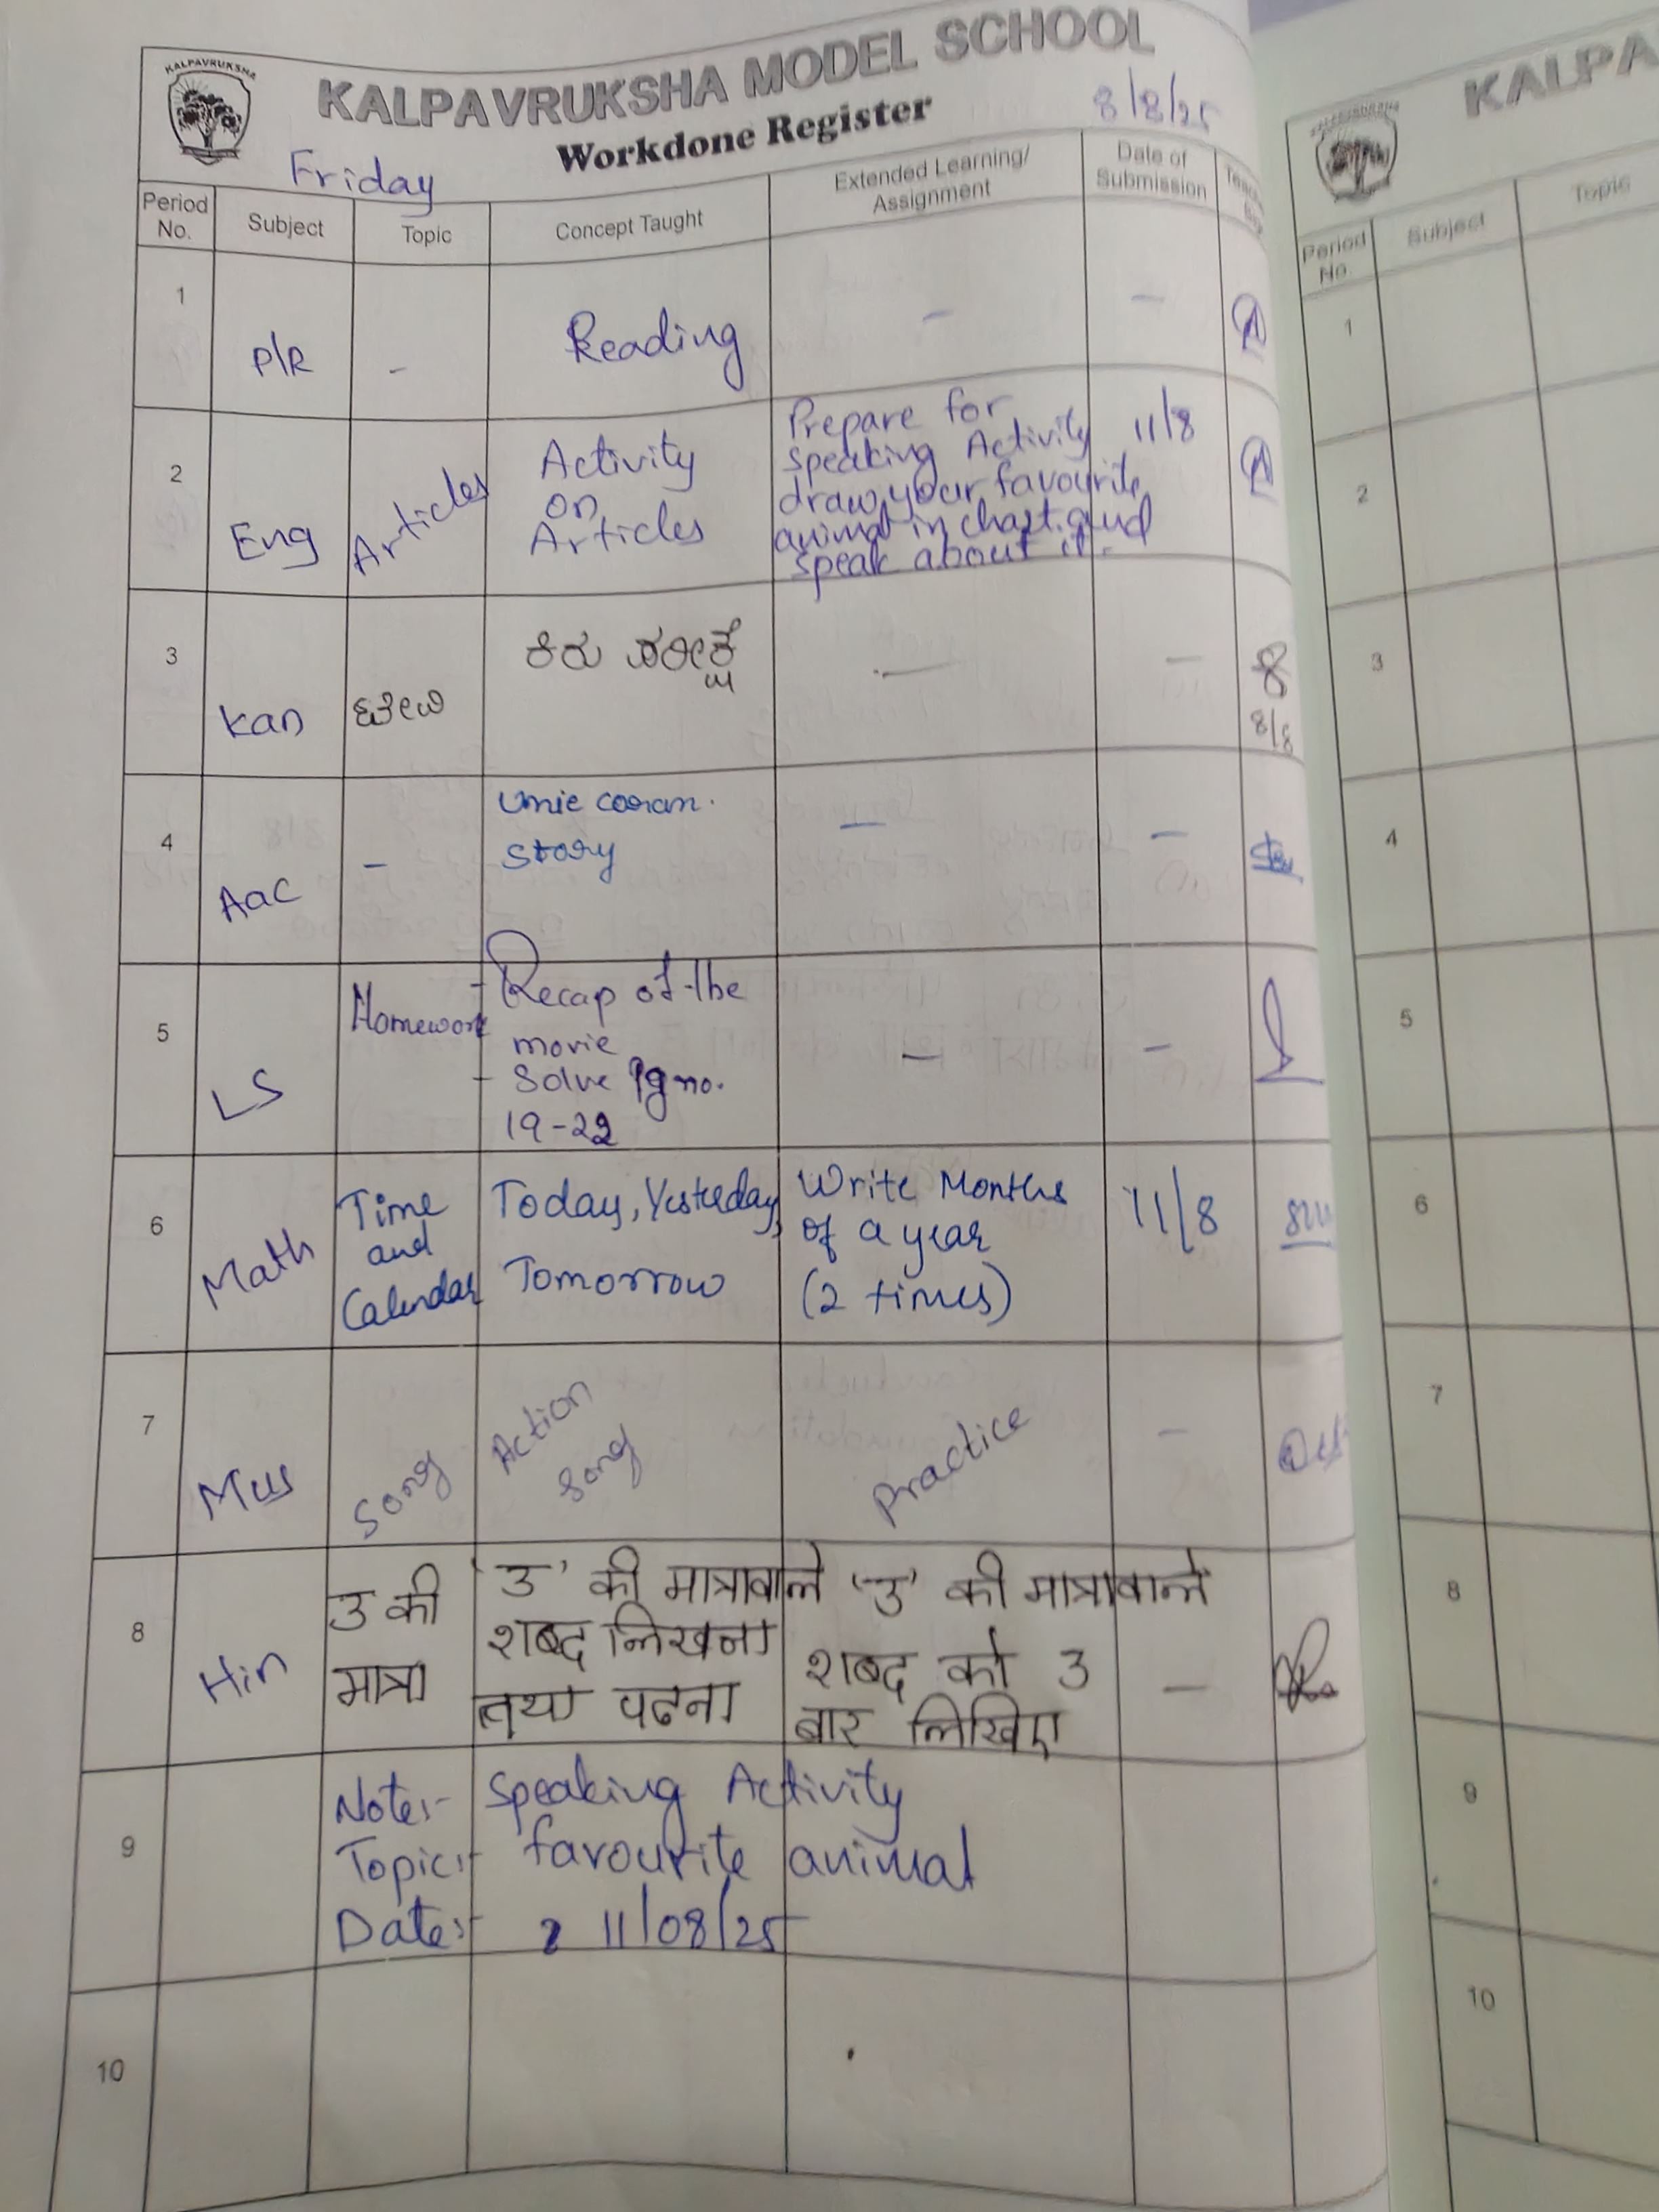 KALPAVRUKSHA
KALPAVRUKSHA MODEL SCHOOL
Workdone Register
8/8/25
Friday
Period No. Subject Topic Concept Taught Extended Learning/ Assignment Date of Submission
1 P/R - Reading - -
2 Eng Articles Activity
on
Articles
Prepare for
speaking Activity 11/8
draw your favourite
animal in chart and
speak about it.
3 Kan ಕಿರು ಪರೀಕ್ಷೆ — -
8/8
4 AaC - story - -
5 LS Homework - Recap of the
movie
- Solve Pg no.
19-22
- -
6 Math Time
and
Calendar
Today, Yesterday,
Tomorrow
Write Months
of a year
(2 times)
11/8
7 Mus Song Action
Song
Practice -
8 Hin उ की
मात्रा
'उ' की मात्रावाले
शब्द लिखना
तथा पढना
'उ' की मात्रावाले
शब्द को 3
बार लिखिए
-
9 Note:- Speaking Activity
Topic:- favourite animal
Date:- 11/08/25
10
KALPA
Period No Subject Topic
1
2
3
4
5
6
7
8
9
10